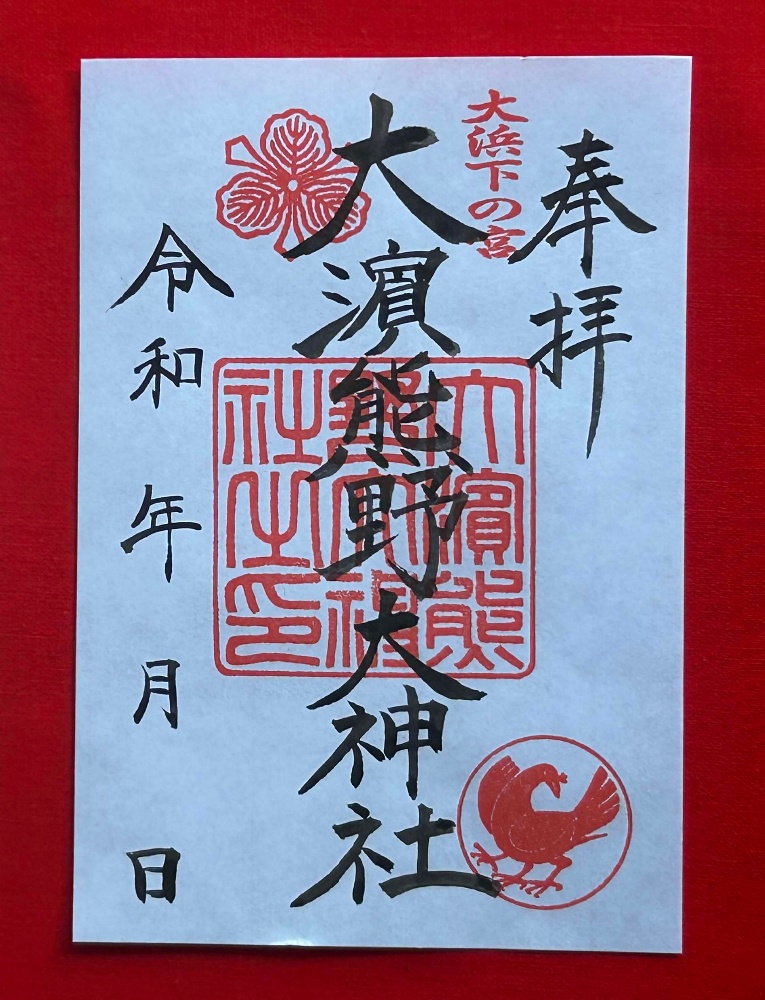 奉拝
大浜下の宮
大濱熊野大神社
大濱熊野大神社之印
令和 年 月 日